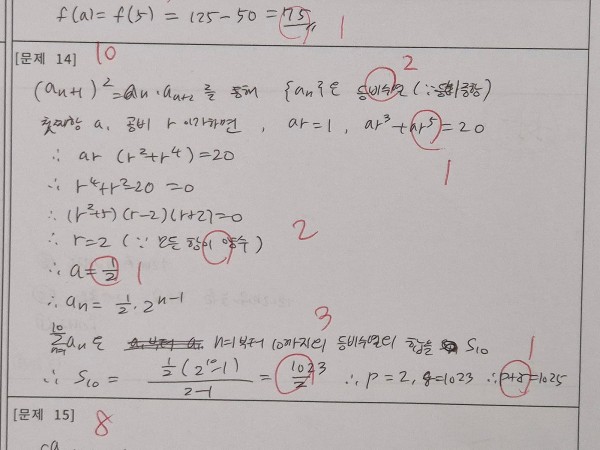 f(a) = f(5) = 125-50 = 75 1
[문제 14] 10
(aₙ₊₁)² = aₙ·aₙ₊₂ 를 통해 {aₙ}은 등비수열 (∵등비중항) 2
첫째항 a, 공비 r 이라하면, ar=1, ar³+ar⁵=20 1
∴ ar (r²+r⁴)=20
∴ r⁴+r²-20=0
∴ (r²+5)(r-2)(r+2)=0
∴ r=2 (∵ 모든 항이 양수) 2
∴ a=1/2 1
∴ aₙ= 1/2·2ⁿ⁻¹
∑aₙ은 n=1부터 10까지의 등비수열의 합을 S₁₀ 3
∴ S₁₀ = 1/2(2¹⁰-1)/2-1 = 1023/2 ∴ p=2, q=1023 ∴p+q=1025 1
[문제 15] 8